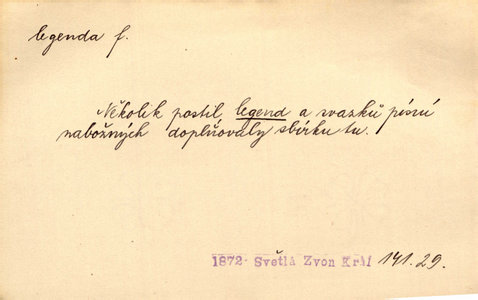 legenda f.
Několik postil, legend a svazků písní
nabožných doplňovaly sbírku tu.
1872 Světlá Zvon Král 141.29.